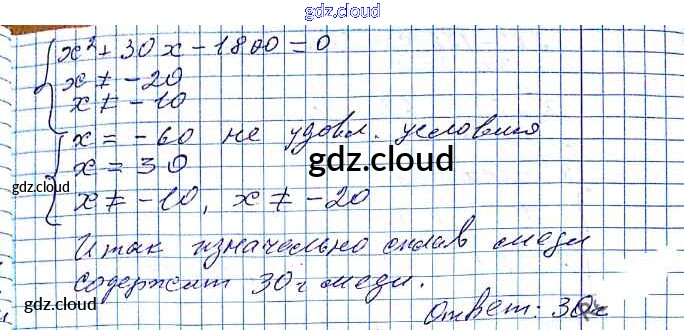 gdz.cloud
x² + 30x - 1800 = 0
x ≠ -20
x ≠ -10
x = -60 не удовл. условия
x = 30
gdz.cloud
gdz.cloud
x ≠ -10, x ≠ -20
Итак изначально сплав меди
содержит 30 г меди.
gdz.cloud
Ответ: 30г
gdz.cloud